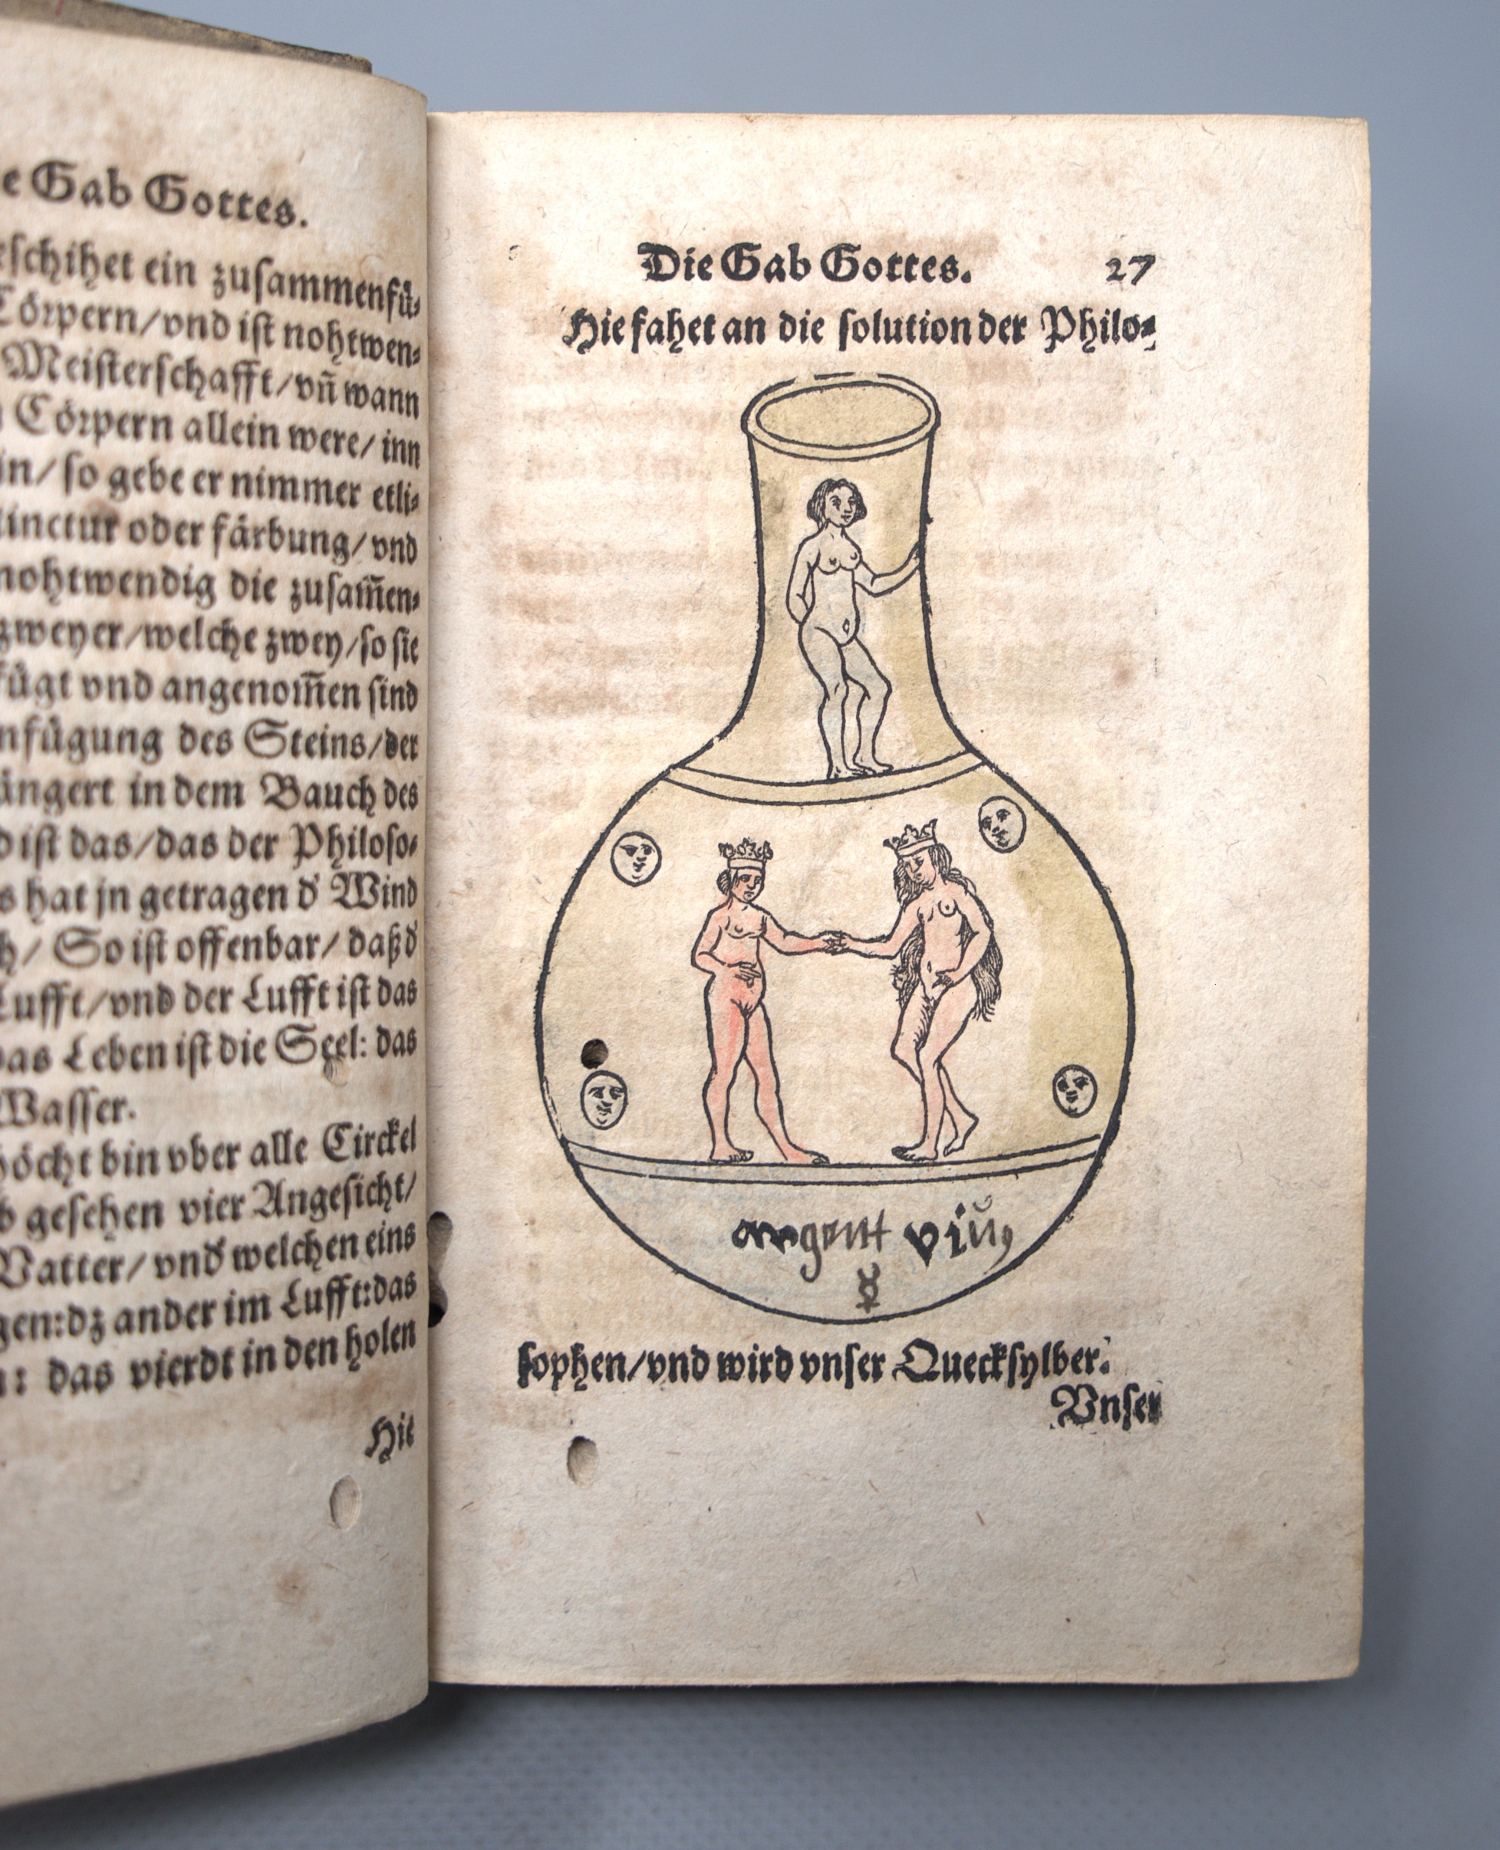 e Gab Gottes.
eschihet ein zusammenfü⸗
Cörpern/vnd ist nohtwen⸗
Meisterschafft/vñ wann
Cörpern allein were/ inn
in/ so gebe er nimmer etli⸗
tinctur oder färbung/vnd
nohtwendig die zusam̃en⸗
zweyer/welche zwey/so sie
fügt vnd angenom̃en sind
nfügung des Steins/der
ängert in dem Bauch des
d ist das/das der Philoso⸗
s hat jn getragen d' Wind
h/ So ist offenbar/ daß d'
Lufft/vnd der Lufft ist das
das Leben ist die Seel: das
Wasser.
höcht bin vber alle Circkel
b gesehen vier Angesicht/
Vatter/ vnd' welchen eins
gen:dz ander im Lufft:das
n: das vierdt in den holen
Hie
Die Gab Gottes. 27
Hie fahet an die solution der Philo⸗
argent viu9
☿
sophen/vnd wird vnser Quecksylber.
Vnser